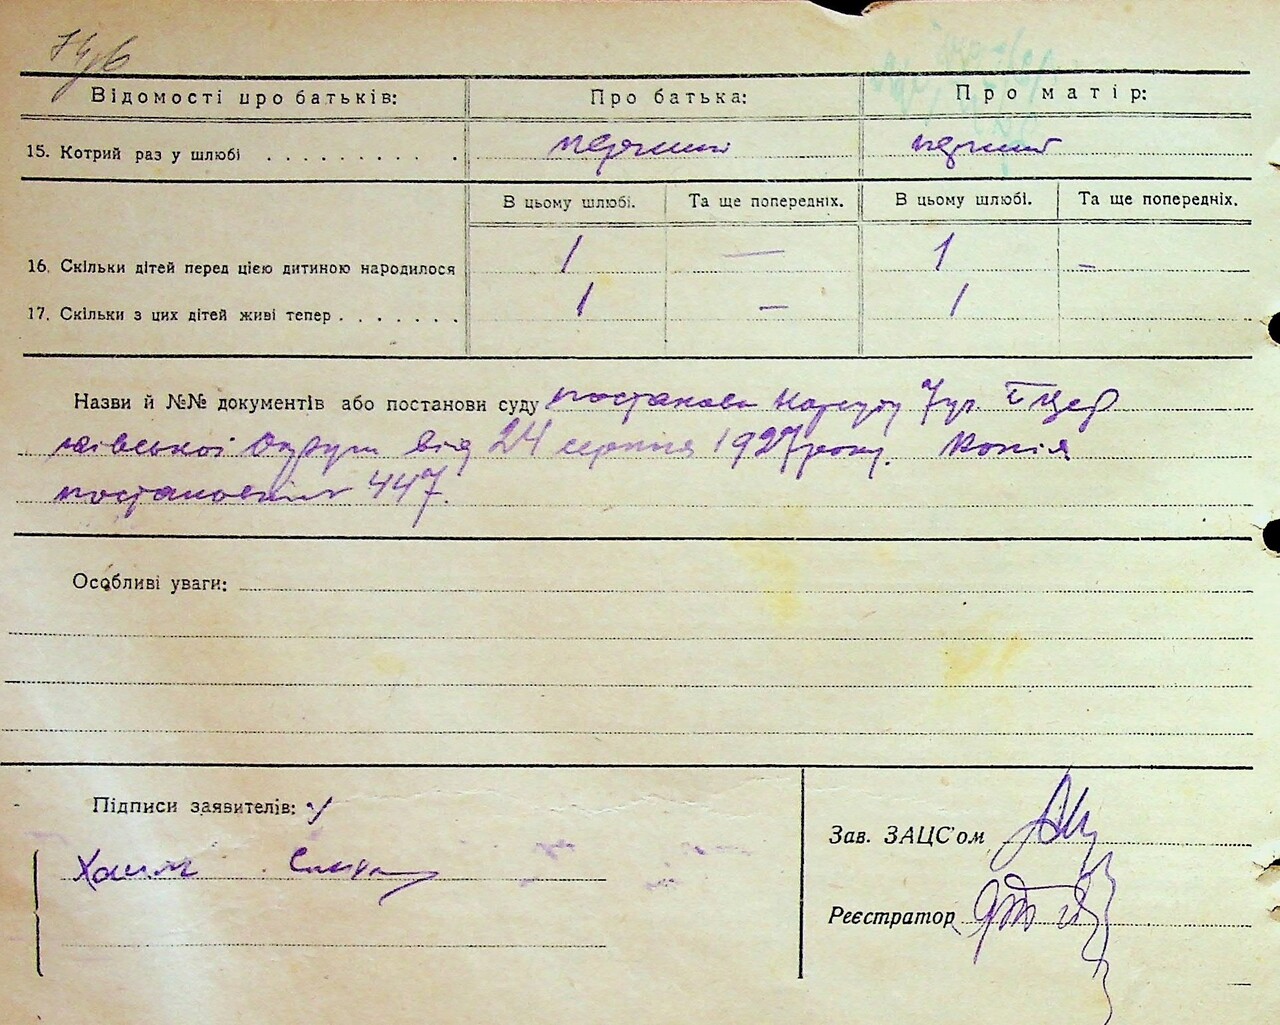 Відомості про батьків: Про батька: Про матір:
15. Котрий раз у шлюбі . . . . . . . . . . перший перший
В цьому шлюбі. Та ще попередніх. В цьому шлюбі. Та ще попередніх.
16. Скільки дітей перед цією дитиною народилося 1 — 1 —
17. Скільки з цих дітей живі тепер . . . . . . . 1 — 1
Назви й №№ документів або постанови суду постанова Нарсуду
округи від 24 серпня 1927 року. Копія
постанови 447.
Особливі уваги:
Підписи заявителів:
Хаим
Зав. ЗАЦС'ом
Реєстратор